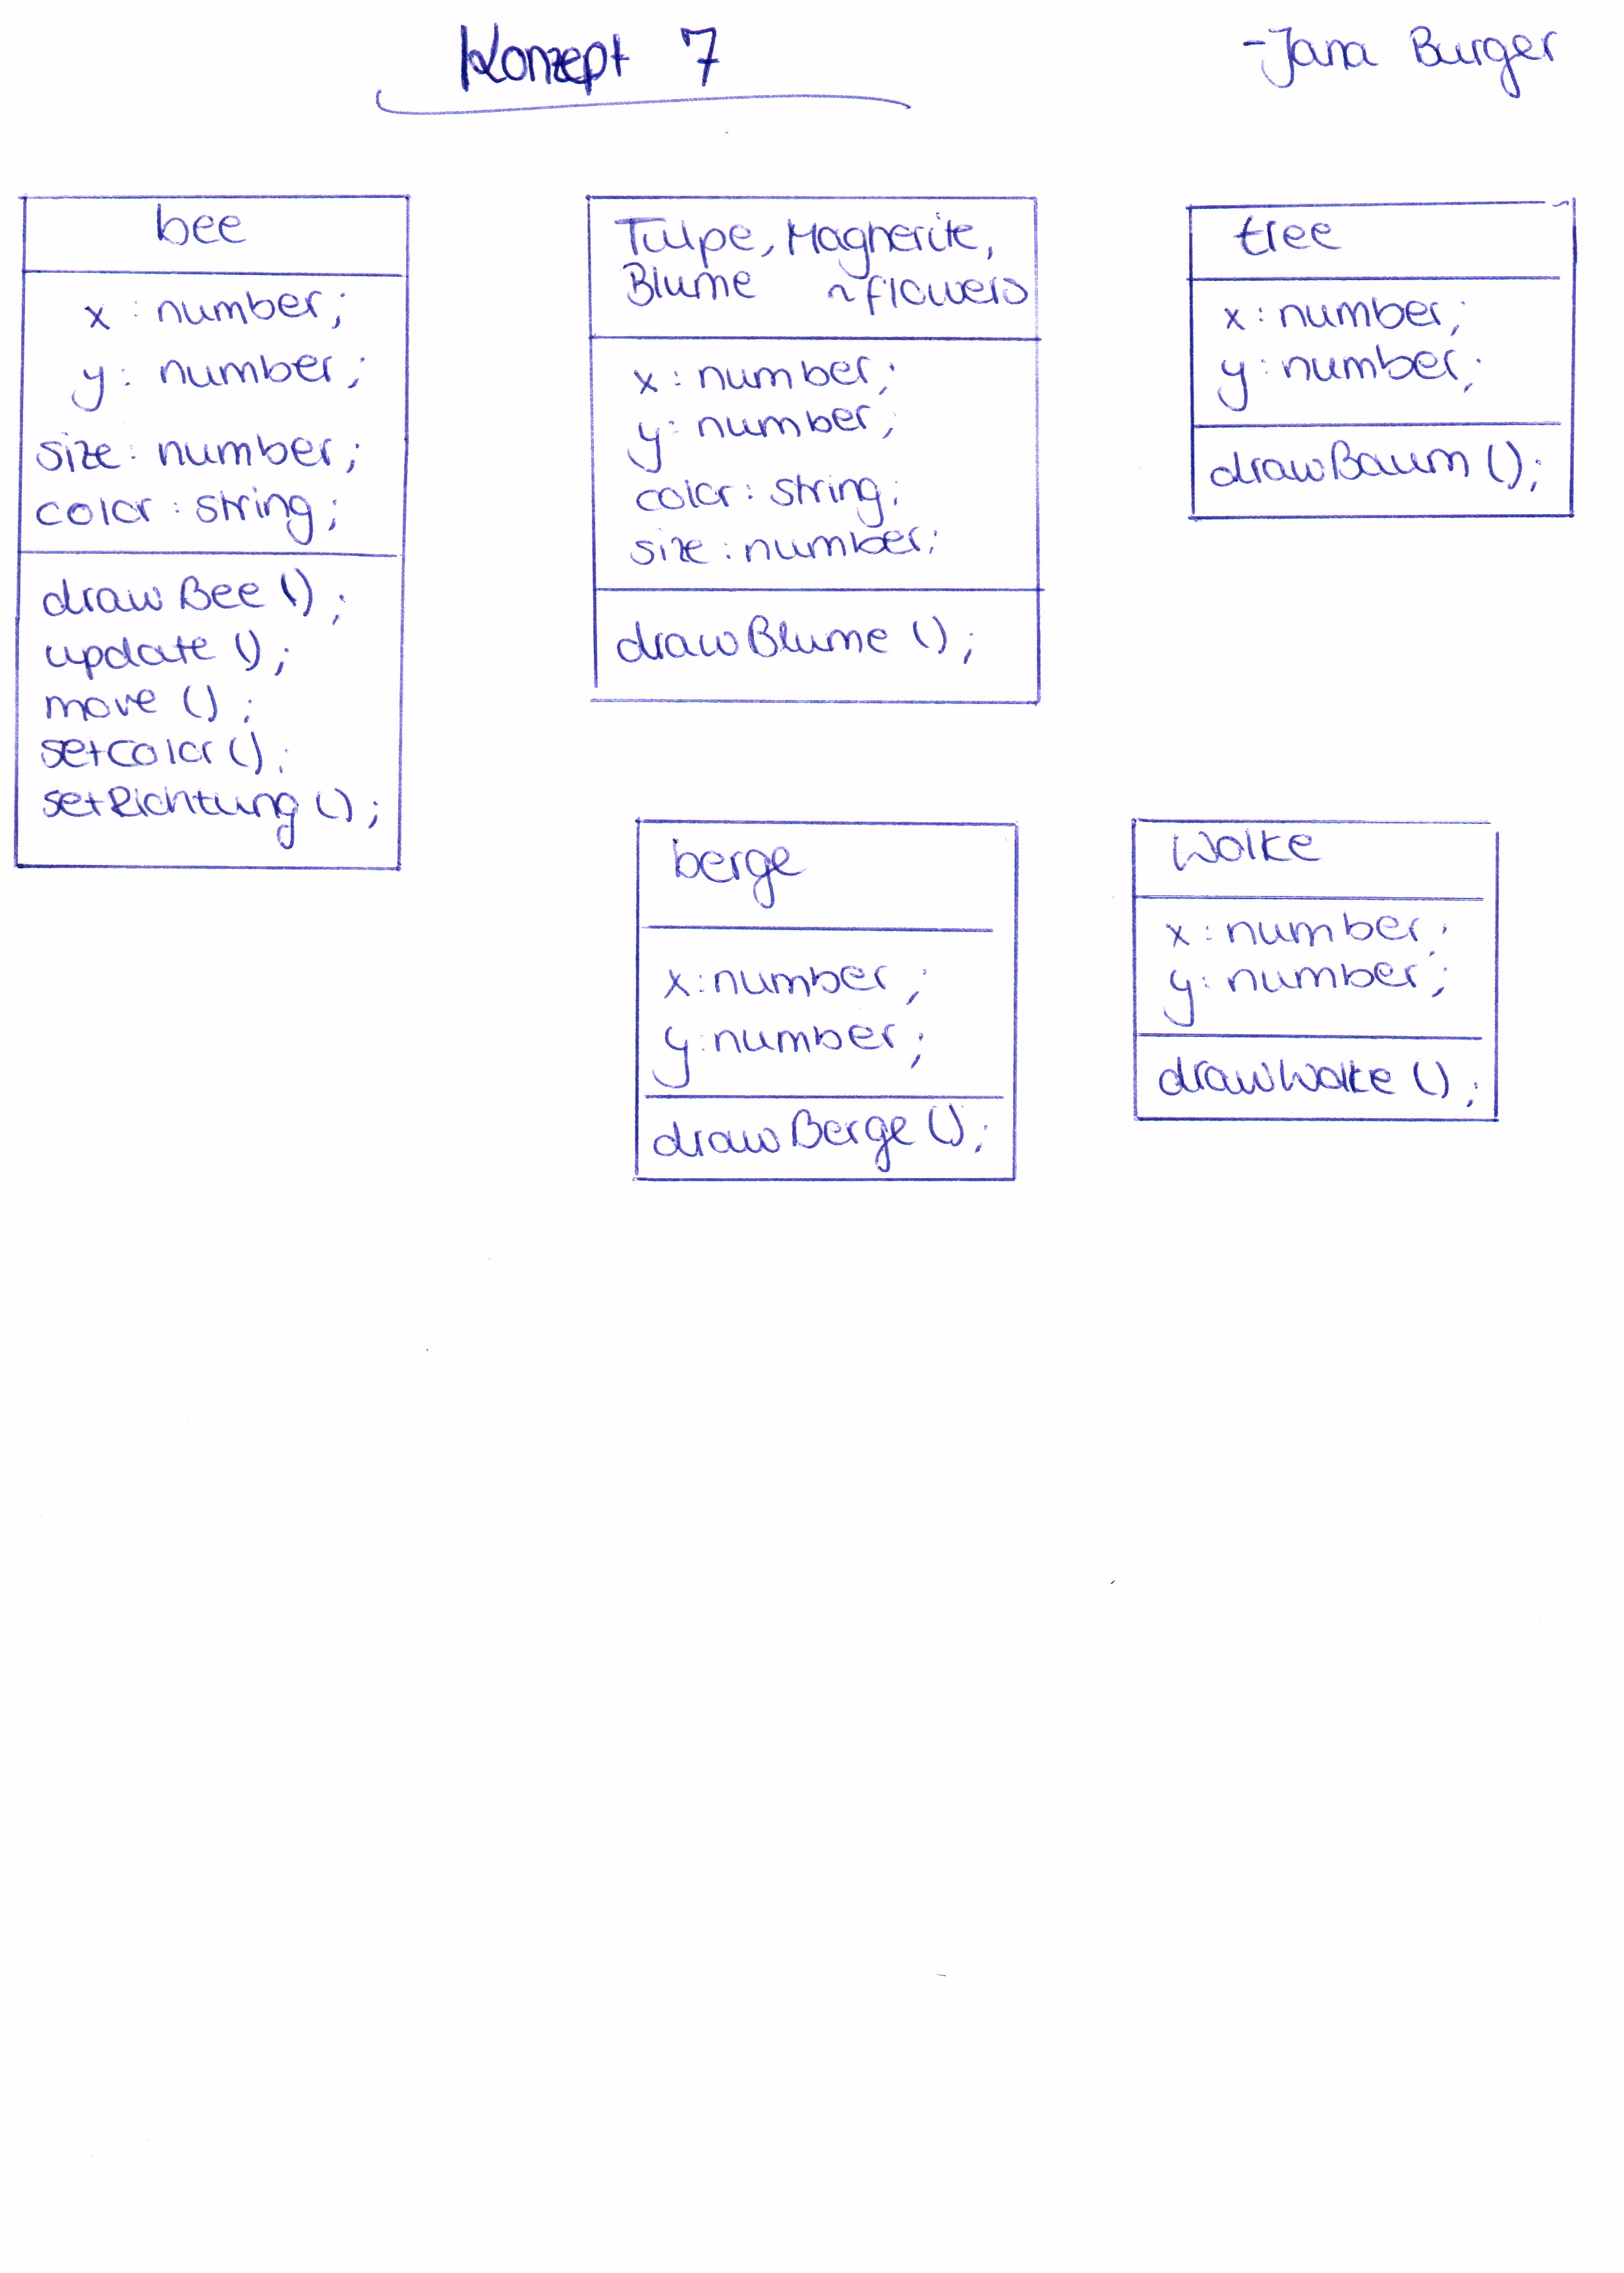 Konzept 7
-Jana Burger
bee
x : number;
y : number;
size : number;
color : string;
drawBee ();
update ();
move ();
setColor ();
setRichtung ();
Tulpe, Magnerite,
Blume ~flowers
x : number;
y : number;
color : string;
size : number;
drawBlume ();
tree
x : number;
y : number;
drawBaum ();
berge
x : number;
y : number;
drawBerge ();
Wolke
x : number;
y : number;
drawWolke ();